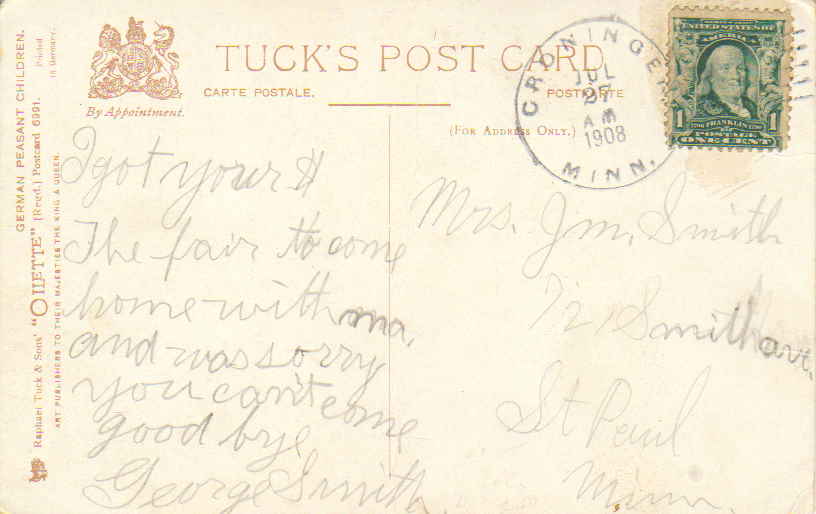 GERMAN PEASANT CHILDREN.
Printed
in Germany.
Raphael Tuck & Sons' "OILETTE" [Regd.] Postcard 6991.
ART PUBLISHERS TO THEIR MAJESTIES THE KING & QUEEN.
By Appointment.
TUCK'S POST CARD
CARTE POSTALE.
POSTKARTE
(FOR ADDRESS ONLY.)
GRONINGEN
JUL
27
AM
1908
MINN.
UNITED STATES OF
AMERICA
1 FRANKLIN 1
POSTAGE
ONE CENT
I got your $
The fair to come
home with ma.
and was sorry
you can't come
good bye
George Smith
Mrs. Jm. Smith
72 Smith ave.
St Paul
Minn.